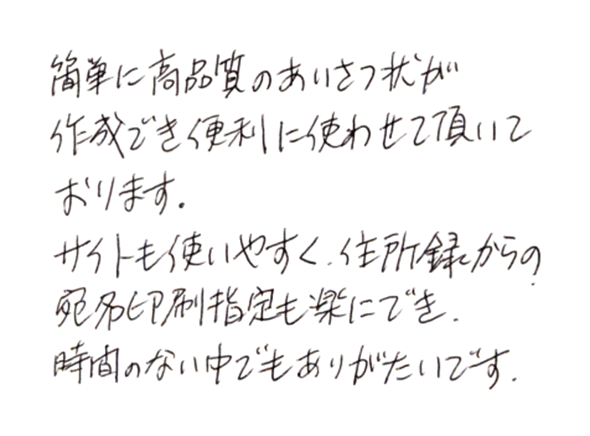 簡単に高品質のあいさつ状が
作成でき便利に使わせて頂いて
おります。
サイトも使いやすく、住所録からの
宛名印刷指定も楽にでき、
時間のない中でもありがたいです。